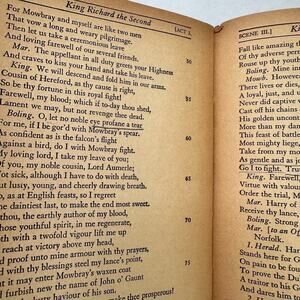 King Richard the Second
[ACT I.
For Mowbray and myself are like two men
That vow a long and weary pilgrimage.
Then let us take a ceremonious leave
And loving farewell of our several friends.
Mar. The appellant in all duty greets your Highness
And craves to kiss your hand and take his leave.
King. We will descend and fold him in our arms.
Cousin of Hereford, as thy cause is right,
So be thy fortune in this royal fight!
Farewell, my blood; which if to-day thou shed,
Lament we may, but not revenge thee dead.
Boling. O, let no noble eye profane a tear
For me, if I be gor'd with Mowbray's spear.
As confident as is the falcon's flight
Against a bird, do I with Mowbray fight.
My loving lord, I take my leave of you;
Of you, my noble cousin, Lord Aumerle;
Not sick, although I have to do with death,
But lusty, young, and cheerly drawing breath.
so, as at English feasts, so I regreet
The daintiest last, to make the end most sweet.
thou, the earthly author of my blood,
Whose youthful spirit, in me regenerate,
th with a twofold vigour lift me up
reach at victory above my head,
proof unto mine armour with thy prayers,
with thy blessings steel my lance's point,
t it may enter Mowbray's waxen coat
furbish new the name of John o' Gaunt
lusty haviour of his son.
make thee prosperous!
50
55
65
70
75
SCENE III.]
Fall like amazing
Of thy adverse per
Boling. Mine
Mow. However
There lives or dies,
A loyal, just, and u
Never did captive
Cast off his chains
His golden uncont
More than my dan
This feast of battle
Most mighty liege
Take from my mo
As gentle and as j
Go I to fight. Tru
King. Farewell,
Virtue with valour
Order the trial, M
Mar. Harry of
Receive thy lance,
Boling. Strong
Mar. [to an Of
Norfolk.
1. Herald. Harry
Stands here for G
On pain to be fo
To prove the Du
A traitor to his
And dares him